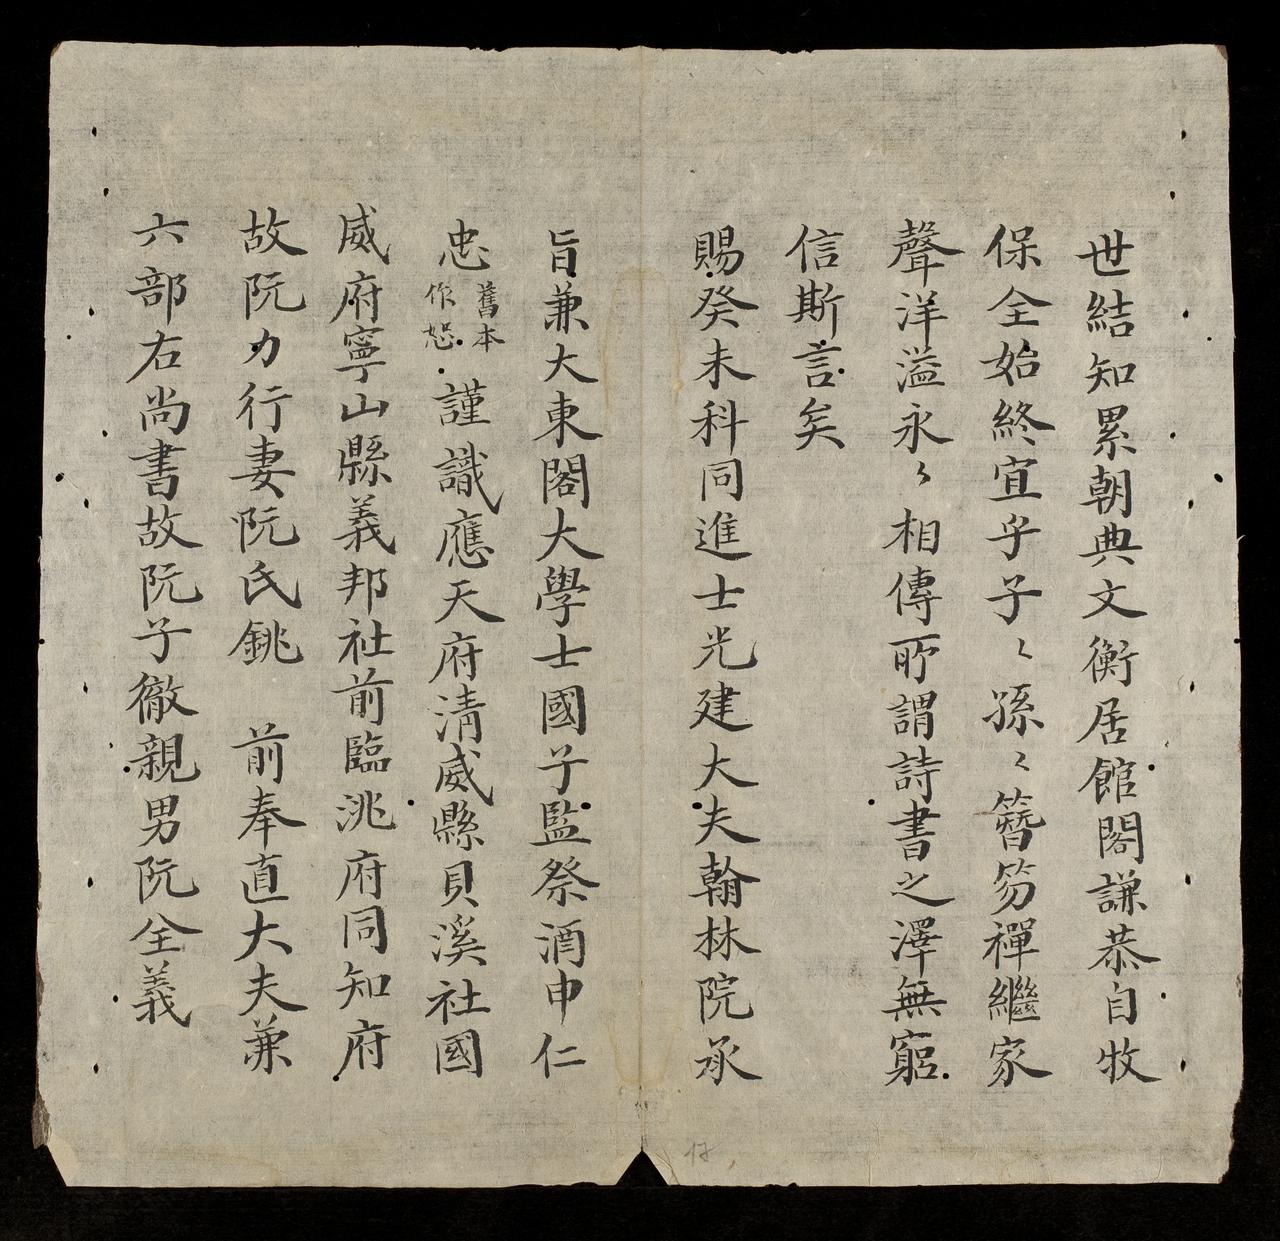 世結知累朝典文衡居館閣謙恭自牧
保全始終宜乎子〻孫〻簪笏禪繼家
聲洋溢永〻相傳所謂詩書之澤無窮
信斯言矣
賜癸未科同進士光建大夫翰林院承
旨兼大東閣大學士國子監祭酒申仁
忠舊本作恕謹識應天府清威縣貝溪社國
威府寧山縣義邦社前臨洮府同知府
故阮力行妻阮氏銚 前奉直大夫兼
六部右尚書故阮子徹親男阮全義